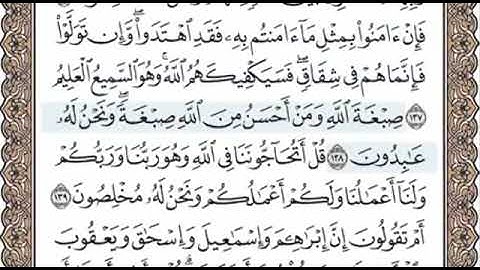 فَإِنْ ءَامَنُوا۟ بِمِثْلِ مَآ ءَامَنتُم بِهِۦ فَقَدِ ٱهْتَدَوا۟ۖ وَّإِن تَوَلَّوْا۟
فَإِنَّمَا هُمْ فِى شِقَاقٍۖ فَسَيَكْفِيكَهُمُ ٱللَّهُۚ وَهُوَ ٱلسَّمِيعُ ٱلْعَلِيمُ
١٣٧ صِبْغَةَ ٱللَّهِ وَمَنْ أَحْسَنُ مِنَ ٱللَّهِ صِبْغَةًۖ وَنَحْنُ لَهُۥ
عَـٰبِدُونَ ١٣٨ قُلْ أَتُحَآجُّونَنَا فِى ٱللَّهِ وَهُوَ رَبُّنَا وَرَبُّكُمْ
وَلَنَآ أَعْمَـٰلُنَا وَلَكُمْ أَعْمَـٰلُكُمْ وَنَحْنُ لَهُۥ مُخْلِصُونَ ١٣٩
أَمْ تَقُولُونَ إِنَّ إِبْرَٰهِـۧمَ وَإِسْمَـٰعِيلَ وَإِسْحَـٰقَ وَيَعْقُوبَ